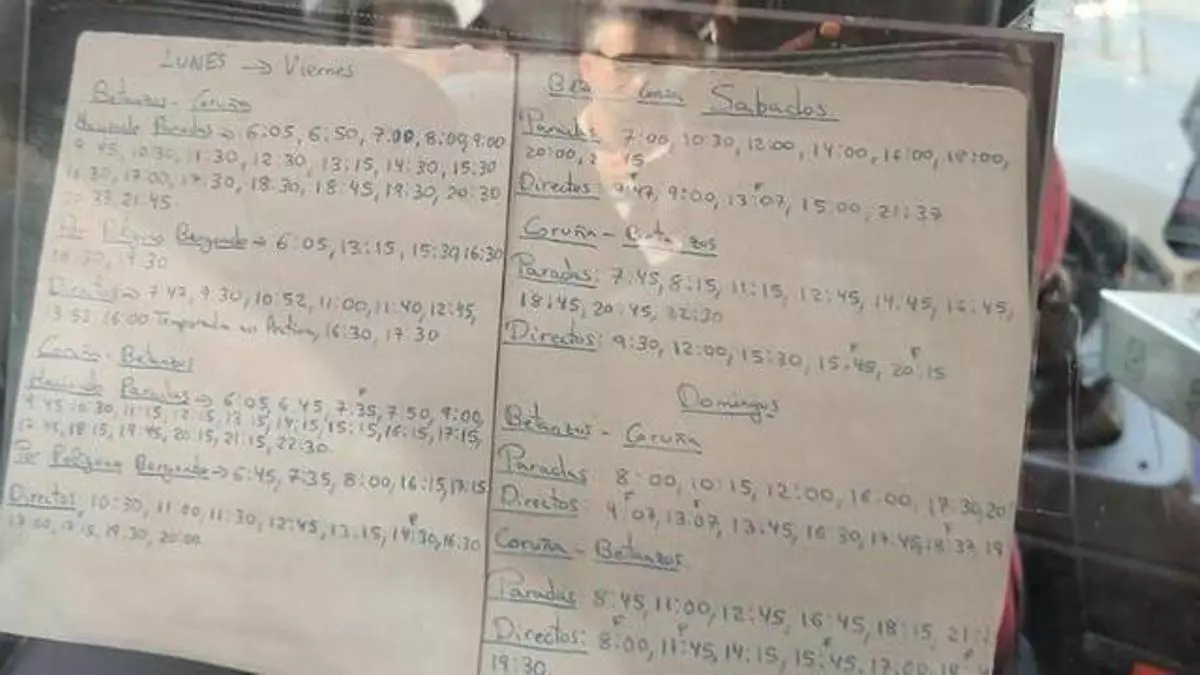 LUNES → Viernes
Betanzos - Coruña
Haciendo Paradas → 6:05, 6:50, 7:00, 8:00, 9:00
9:45, 10:30, 11:30, 12:30, 13:15, 14:30, 15:30
16:30, 17:00, 17:30, 18:30, 18:45, 19:30, 20:30
21:45
Por Polígono Bergondo → 6:05, 13:15, 15:30, 16:30
19:30
Directos → 7:47, 9:30, 10:52, 11:00, 11:40, 12:45,
13:53, 16:00 Temporada 16:30, 17:30
Coruña - Betanzos
Haciendo Paradas → 6:05, 6:45, 7:35, F 7:50, 9:00,
9:45, 10:30, 11:15, 12:15, 13:15, 14:15, 15:15, 16:15, 17:15,
17:45, 18:15, 19:45, 20:15, 21:15, 22:30.
Por Polígono Bergondo → 6:45, 7:35, 8:00, 16:15, 17:15
Directos, 10:30, 11:00, 11:30, 12:45, 13:15, 14:30, F 16:30
17:00, 17:15, 19:30, 20:00
Sabados.
Paradas: 7:00, 10:30, 12:00, 14:00, 16:00, 18:00,
20:00,
Directos: 9:00, 13:07, F 15:00, 21:37
Coruña - Betanzos
Paradas: 7:45, 8:15, 11:15, 12:45, 14:45, 16:45,
18:45, 20:45, 22:30
Directos: 9:30, 12:00, 15:30, 15:45, F 20:15 F
Domingos
Betanzos - Coruña
Paradas: 8:00, 10:15, 12:00, 16:00, 17:30, 20
Directos: 9:07, F 13:07, F 13:45, 16:30, 17:45, 18:37, F 19
Coruña - Betanzos
Paradas 8:45, 11:00, 12:45, 16:45, 18:15, 21:
Directos: 8:00, F 11:45, F 14:15, 15:45, F 17:00, 18: F
19:30.